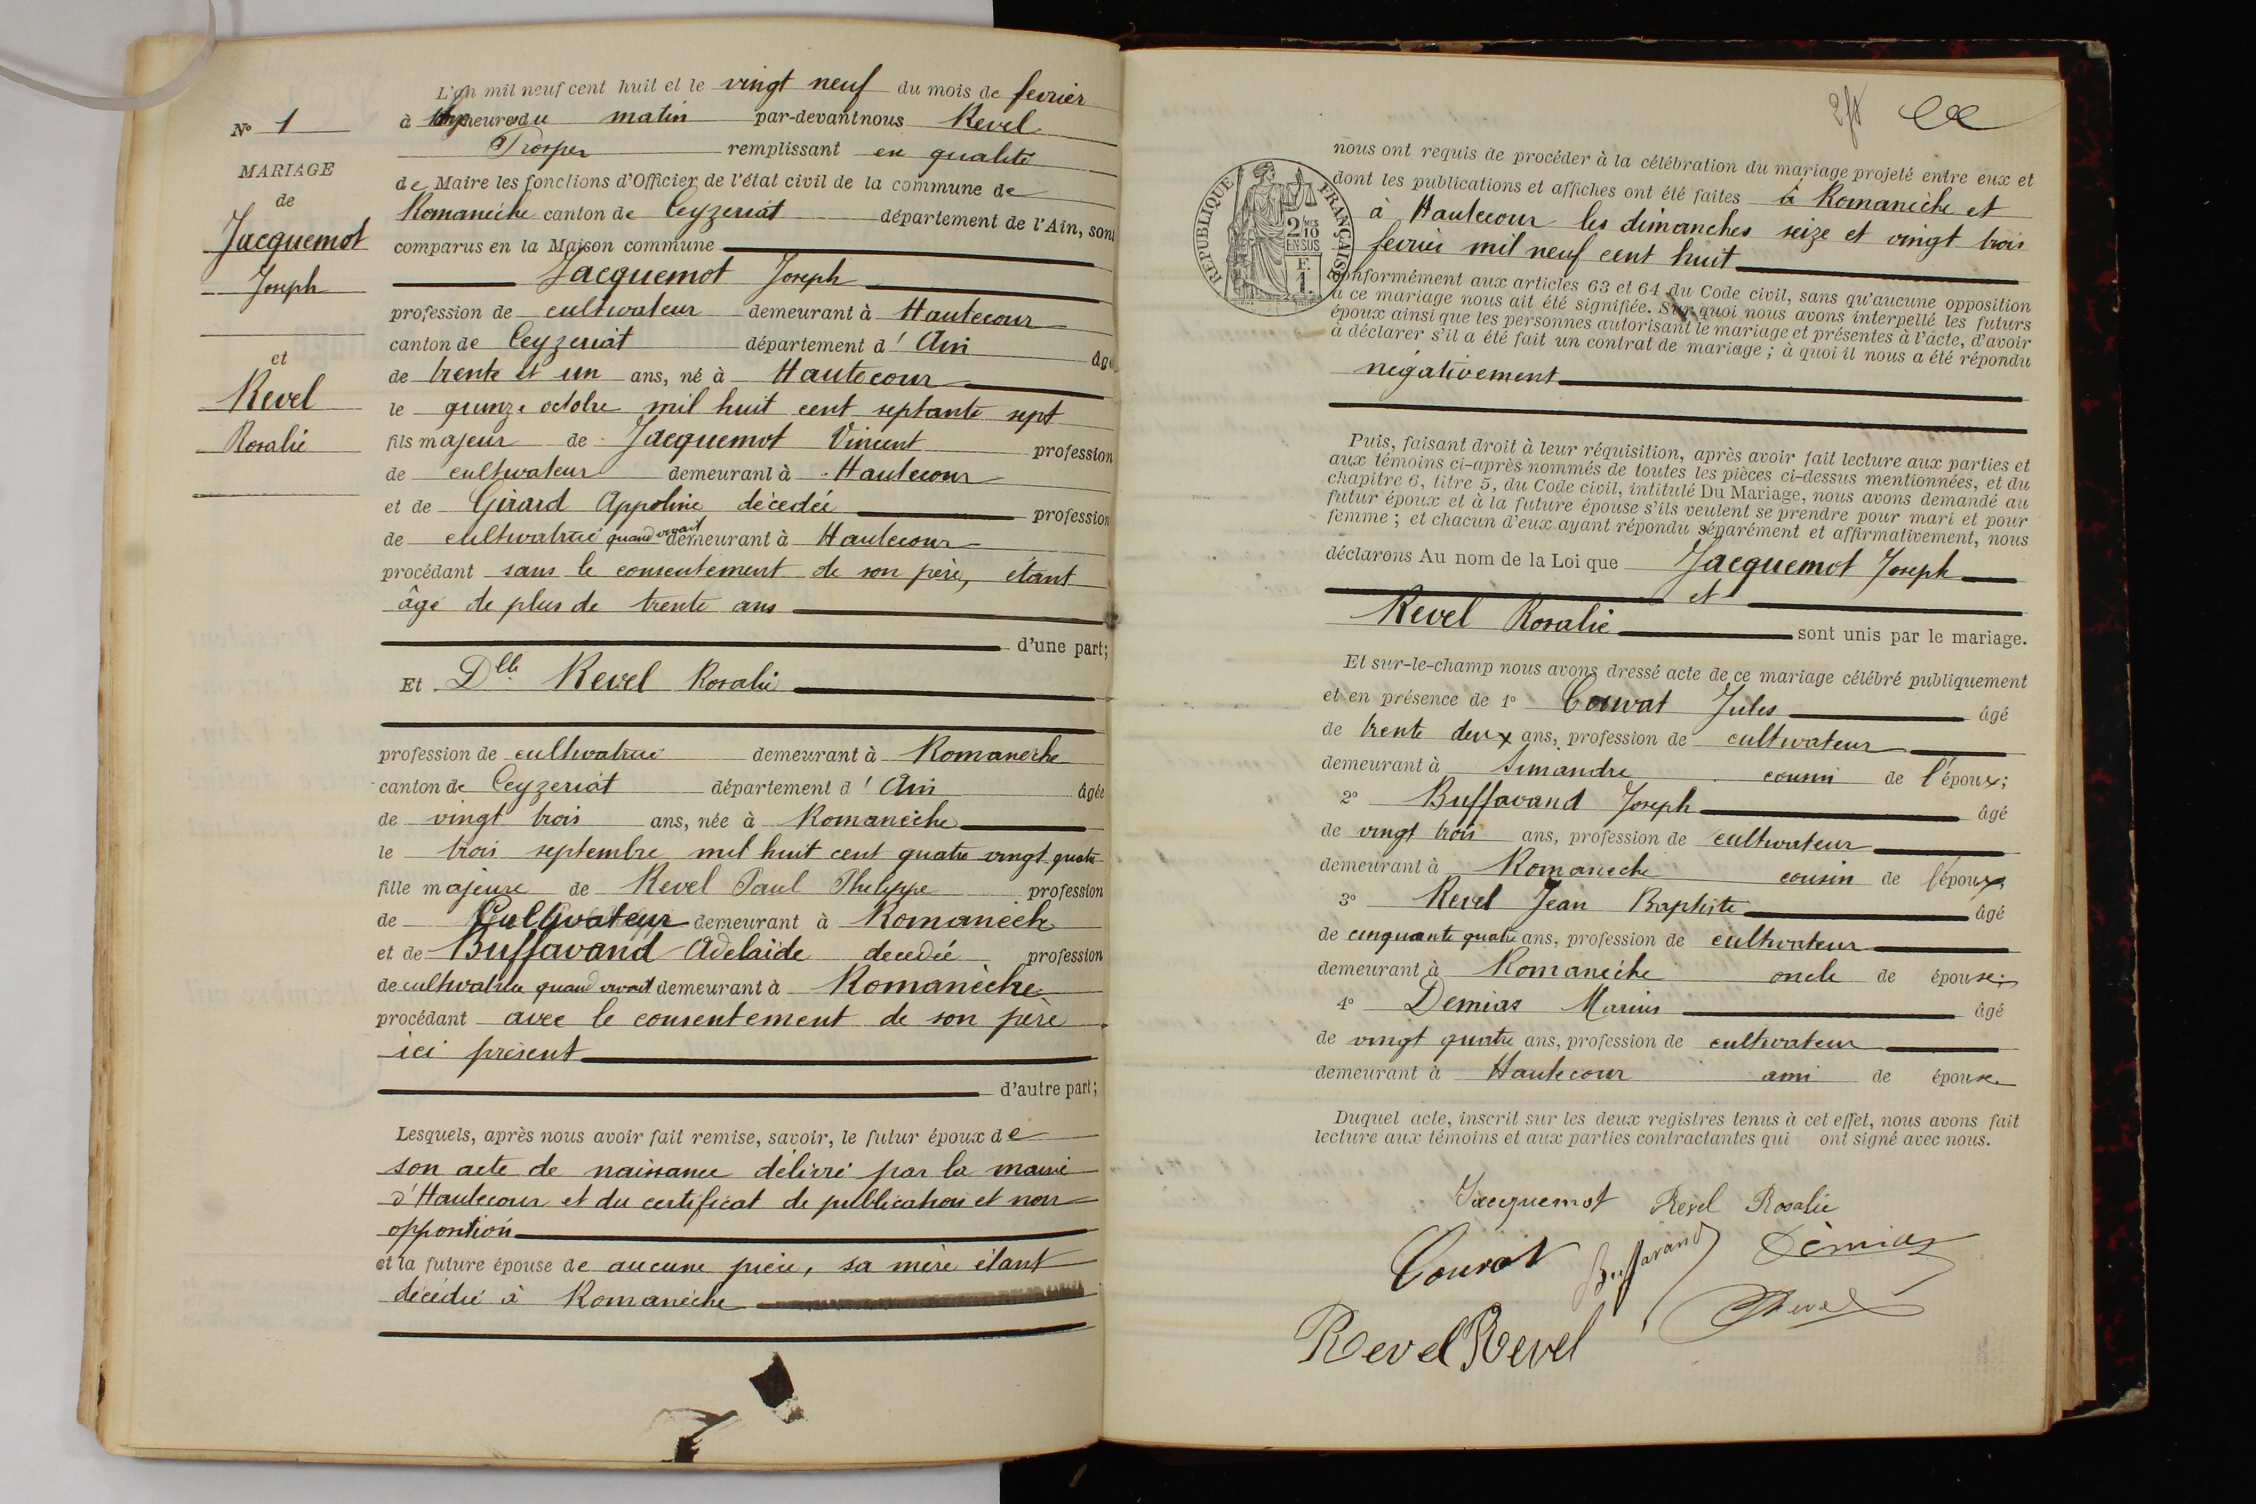 N° 1
MARIAGE
de
Jacquemot
Joseph
et
Revel
Rosalie
L'an mil neuf cent huit et le vingt neuf du mois de fevrier
à heures du matin par-devant nous Revel
Prosper remplissant en qualité
de Maire les fonctions d'Officier de l'état civil de la commune de
Romanèche canton de Ceyzeriat département de l'Ain, sont
comparus en la Maison commune
Jacquemot Joseph
profession de cultivateur demeurant à Hautecour
canton de Ceyzeriat département d'Ain âgé
de trente et un ans, né à Hautecour
le quinze octobre mil huit cent septante sept
fils majeur de Jacquemot Vincent profession
de cultivateur demeurant à Hautecour
et de Girard Appoline décedée profession
de cultivatrice quand vivait demeurant à Hautecour
procédant sans le consentement de son père, étant
âgé de plus de trente ans
d'une part;
Et Dlle Revel Rosalie
profession de cultivatrice demeurant à Romanèche
canton de Ceyzeriat département d'Ain âgée
de vingt trois ans, née à Romanèche
le trois septembre mil huit cent quatre vingt quatre
fille majeure de Revel Paul Philippe profession
de Cultivateur demeurant à Romanèch
et de Buffavand Adelaïde decedée profession
de cultivatrice quand vivait demeurant à Romanèche
procédant avec le consentement de son père
ici présent
d'autre part;
Lesquels, après nous avoir fait remise, savoir, le futur époux de
son acte de naissance délivré par la mairie
d'Hautecour et du certificat de publication et non
opposition
et la future épouse de aucune pièce, sa mère étant
décédée à Romanèche
RÉPUBLIQUE FRANÇAISE
2/10
EN SUS
F.
1.
nous ont requis de procéder à la célébration du mariage projeté entre eux et
dont les publications et affiches ont été faites à Romanèche et
à Hautecour les dimanches seize et vingt trois
fevrier mil neuf cent huit
conformément aux articles 63 et 64 du Code civil, sans qu'aucune opposition
à ce mariage nous ait été signifiée. Sur quoi nous avons interpellé les futurs
époux ainsi que les personnes autorisant le mariage et présentes à l'acte, d'avoir
à déclarer s'il a été fait un contrat de mariage; à quoi il nous a été répondu
négativement
Puis, faisant droit à leur réquisition, après avoir fait lecture aux parties et
aux témoins ci-après nommés de toutes les pièces ci-dessus mentionnées, et du
chapitre 6, titre 5, du Code civil, intitulé Du Mariage, nous avons demandé au
futur époux et à la future épouse s'ils veulent se prendre pour mari et pour
femme; et chacun d'eux ayant répondu séparément et affirmativement, nous
déclarons Au nom de la Loi que Jacquemot Joseph
et
Revel Rosalie sont unis par le mariage.
Et sur-le-champ nous avons dressé acte de ce mariage célébré publiquement
et en présence de 1° Couvat Jules âgé
de trente deux ans, profession de cultivateur
demeurant à Simandre cousin de l'époux;
2° Buffavand Joseph âgé
de vingt trois ans, profession de cultivateur
demeurant à Romanèche cousin de l'époux
3° Revel Jean Baptiste âgé
de cinquante quatre ans, profession de cultivateur
demeurant à Romanèche oncle de épouse;
4° Demias Marius âgé
de vingt quatre ans, profession de cultivateur
demeurant à Hautecour ami de épouse
Duquel acte, inscrit sur les deux registres tenus à cet effet, nous avons fait
lecture aux témoins et aux parties contractantes qui ont signé avec nous.
Jacquemot Revel Rosalie
Couvat Buffavand Démias
Revel Revel Revel